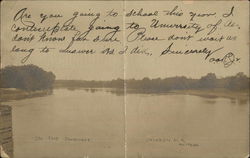 Are you going to school this year. I
contemplate going to University of
don't know for sure. Please don't wait as
long to answer as I did. Sincerely
ON THE